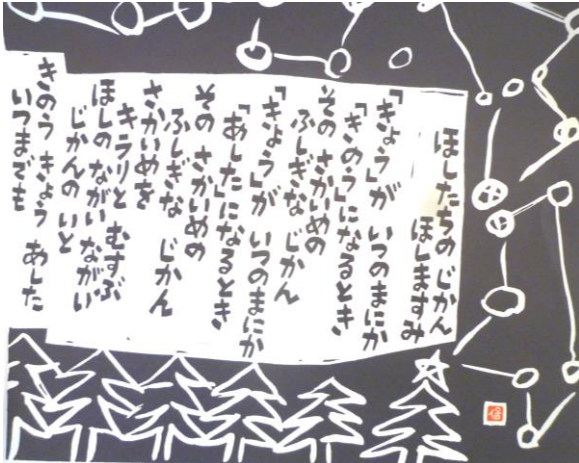 ほしたちの じかん
ほしますみ
「きょう」が いつのまにか
「きのう」になるとき
その さかいめの
ふしぎな じかん
「きょう」が いつのまにか
「あした」になるとき
その さかいめの
ふしぎな じかん
さかいめを
キラリと むすぶ
ほしの ながい ながい
じかんの いと
きのう きょう あした
いつまでも